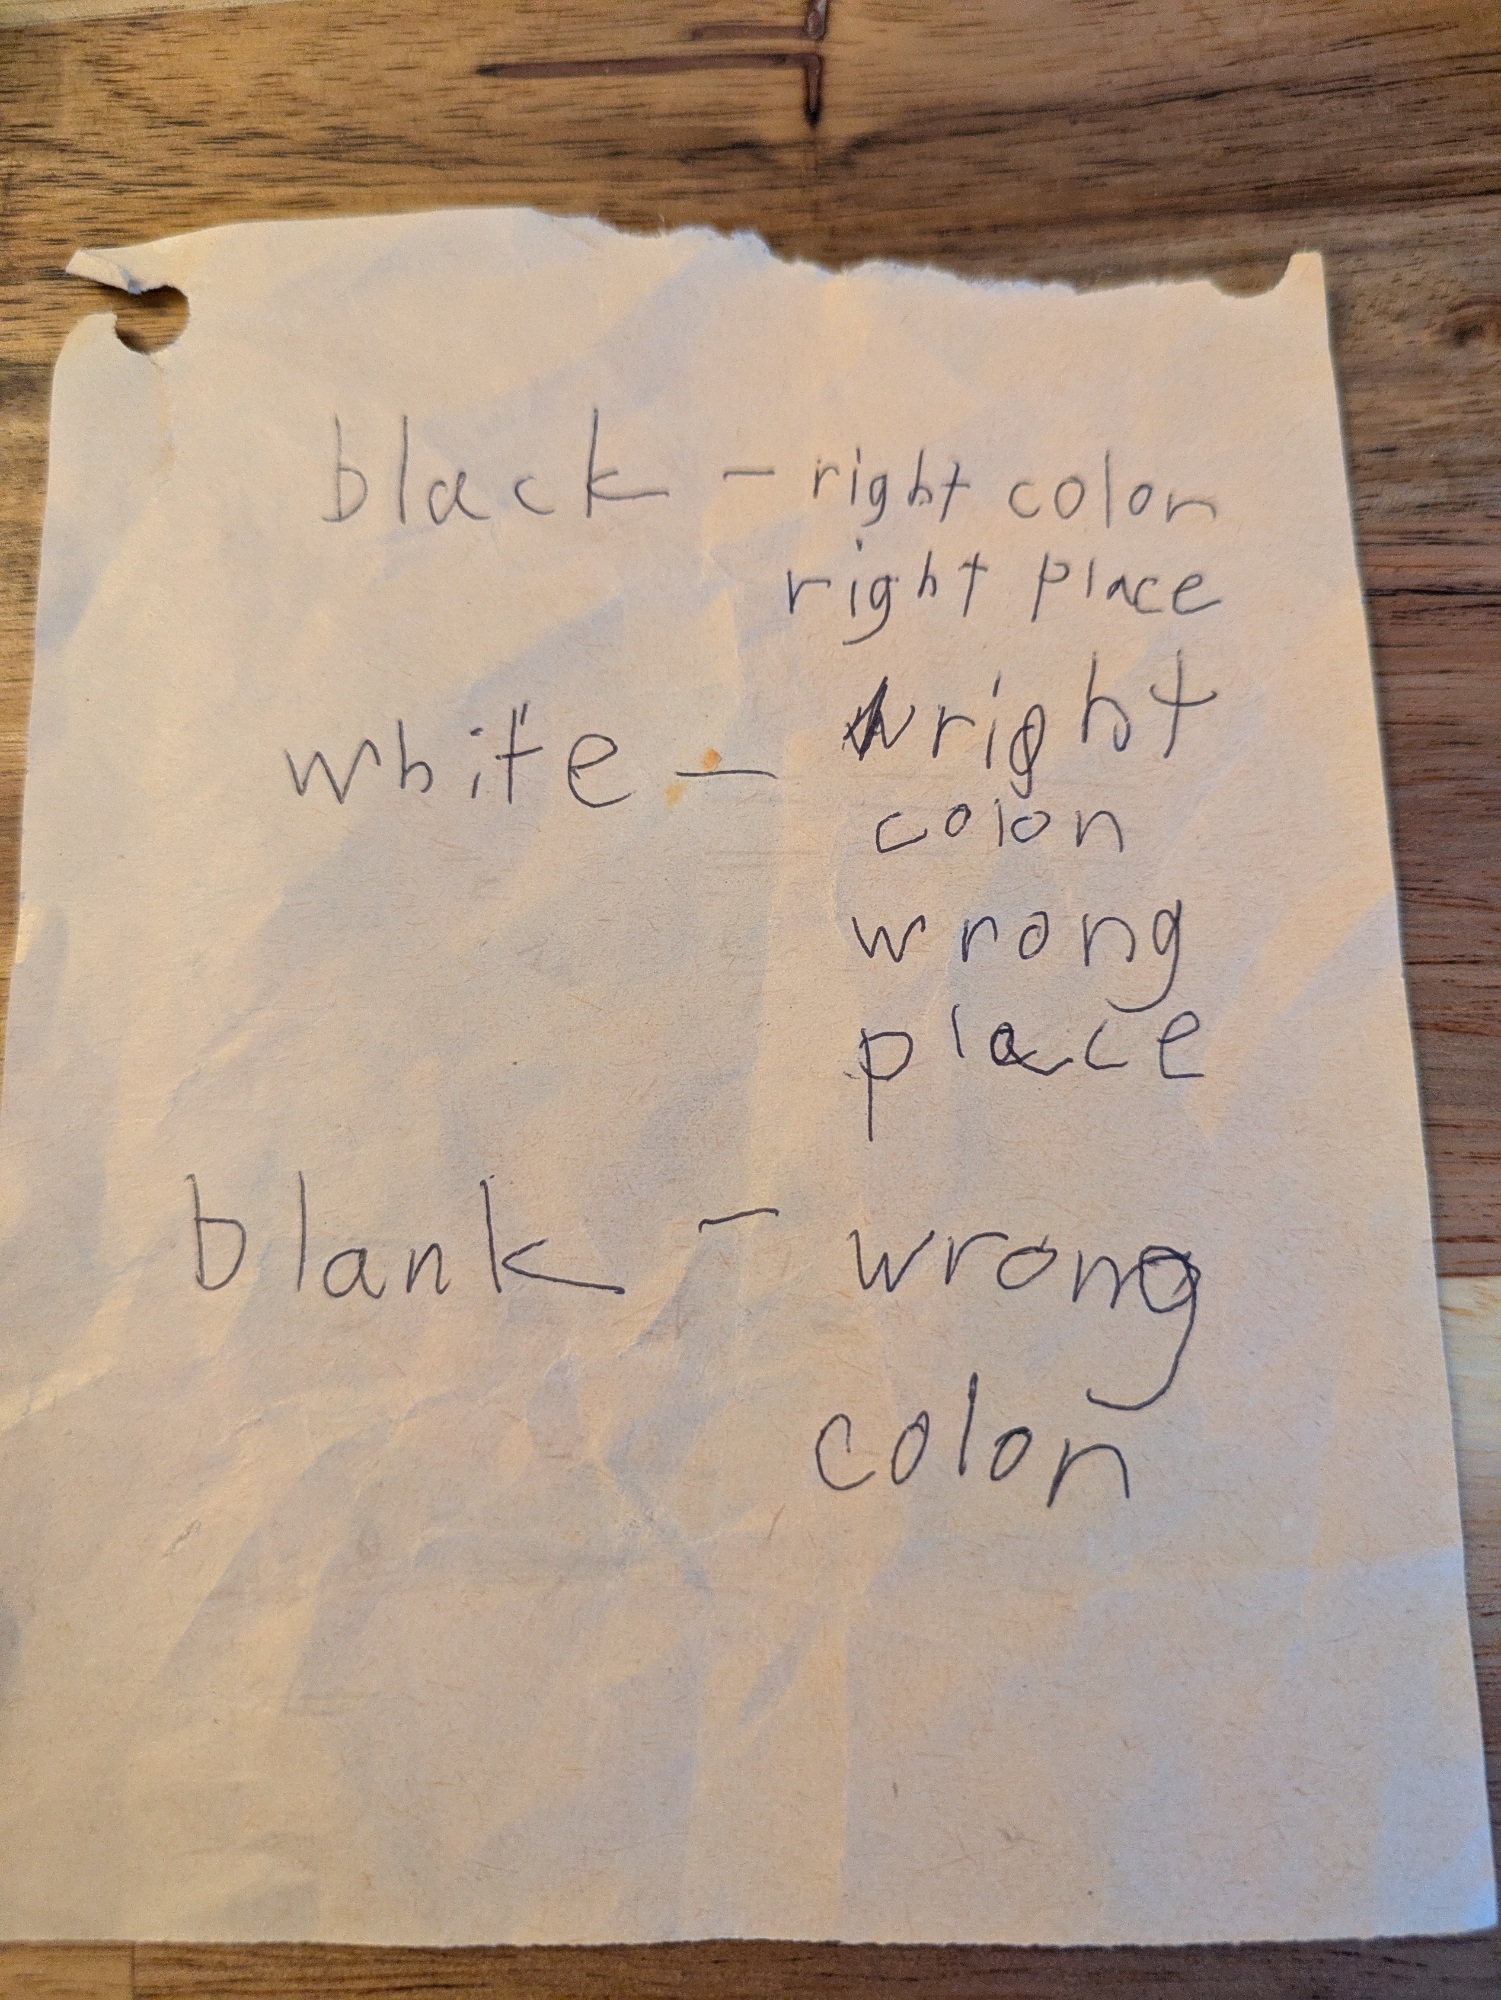 black - right color
right place
white - right
color
wrong
place
blank - wrong
color